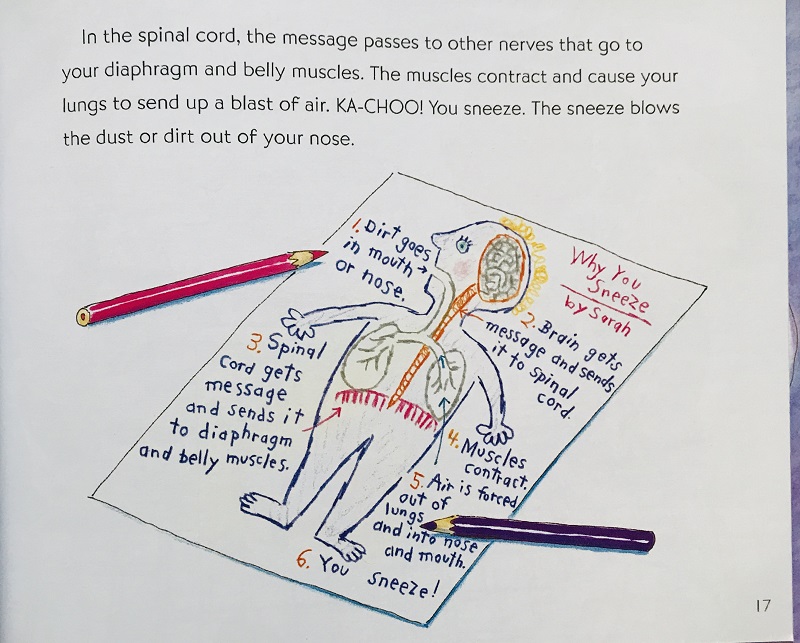 In the spinal cord, the message passes to other nerves that go to
your diaphragm and belly muscles. The muscles contract and cause your
lungs to send up a blast of air. KA-CHOO! You sneeze. The sneeze blows
the dust or dirt out of your nose.
Why You
Sneeze
by Sarah
1. Dirt goes
in mouth
or nose.
2. Brain gets
message and sends
it to spinal
cord.
3. Spinal
Cord gets
message
and sends it
to diaphragm
and belly muscles.
4. Muscles
contract.
5. Air is forced
out of
lungs
and into nose
and mouth.
6. You sneeze!
17